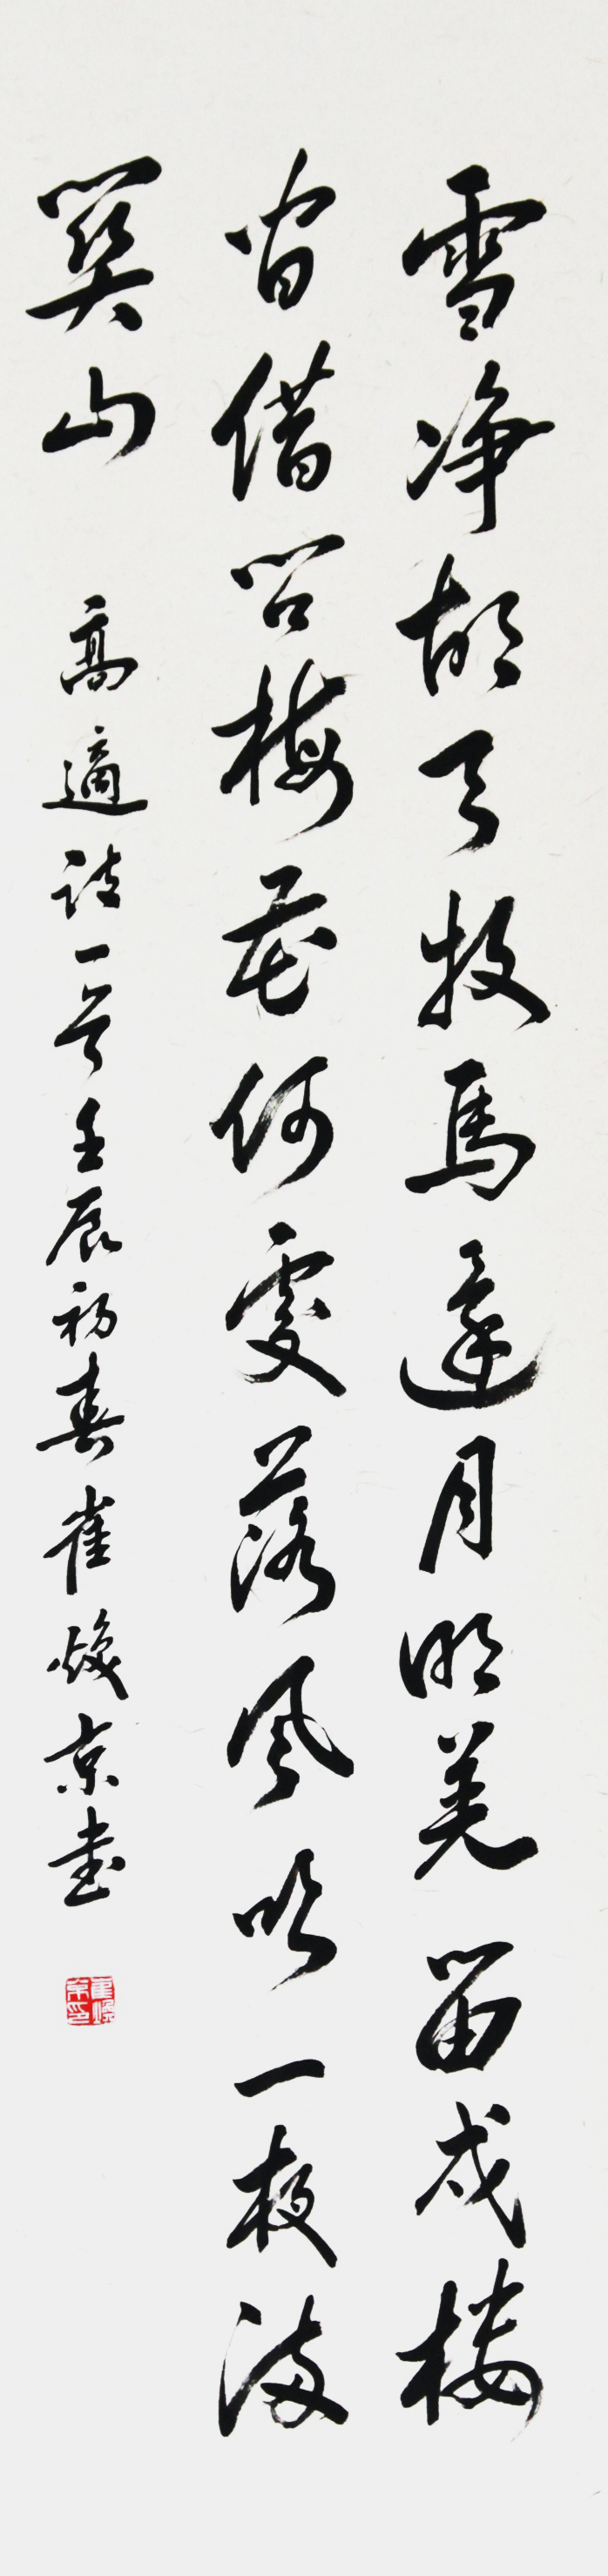 雪净胡天牧馬還月明羌笛戍樓
間借問梅花何處落風吹一夜滿
關山 高適詩一首壬辰初春崔焕京書
崔焕京印